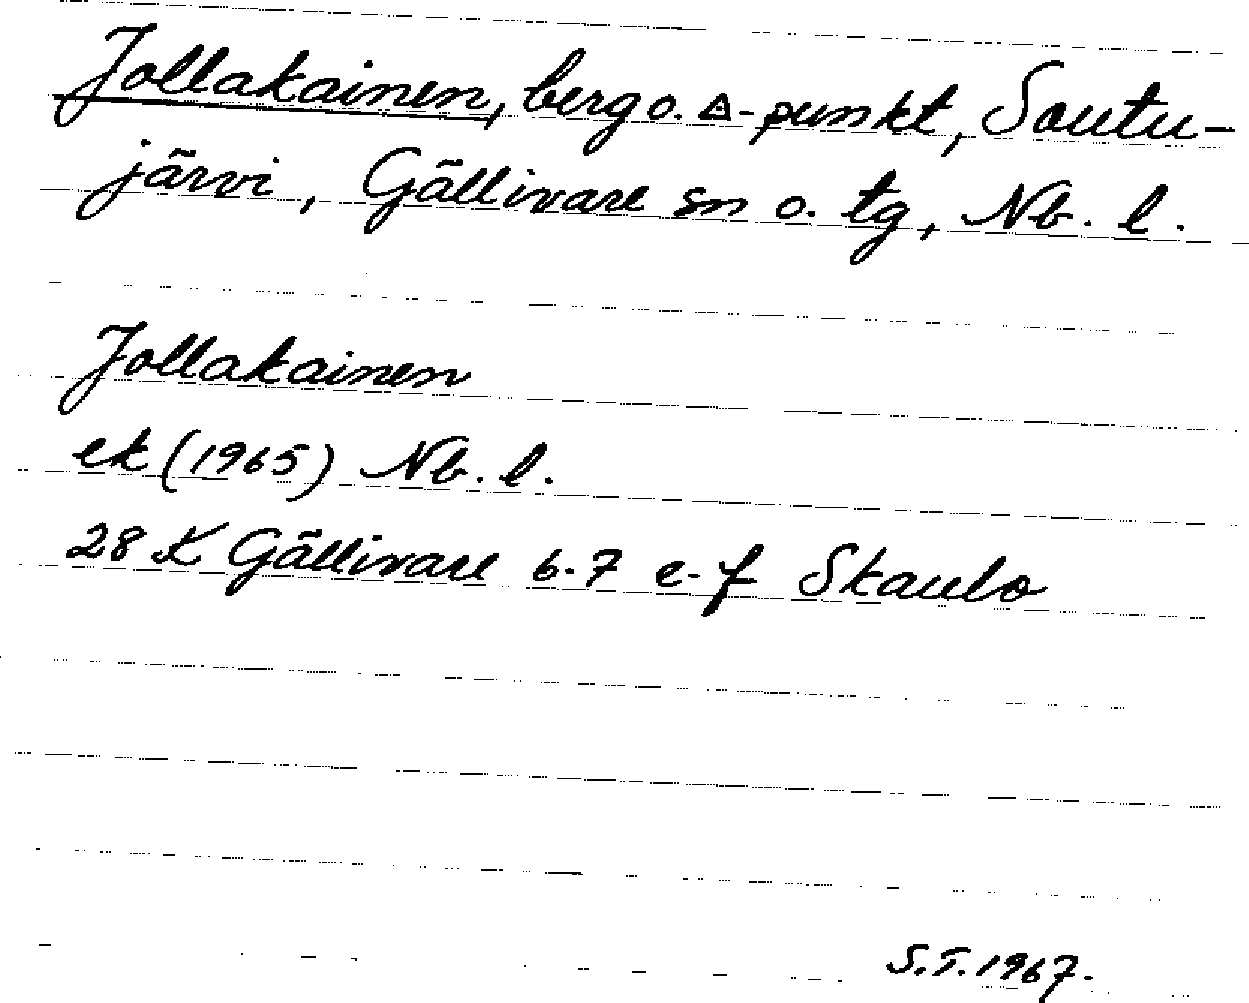 Jollakainen, berg o. △-punkt, Soutu-
järvi, Gällivare sn o. tg, Nb. l.
Jollakainen
ek (1965) Nb. l.
28 K Gällivare 6-7 e-f Skaulo
S.T. 1967.